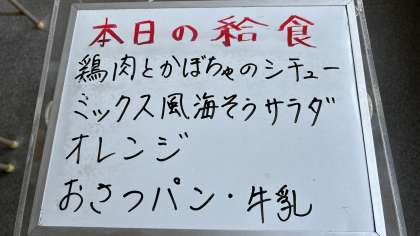 本日の給食
鶏肉とかぼちゃのシチュー
ミックス風海そうサラダ
オレンジ
おさつパン・牛乳